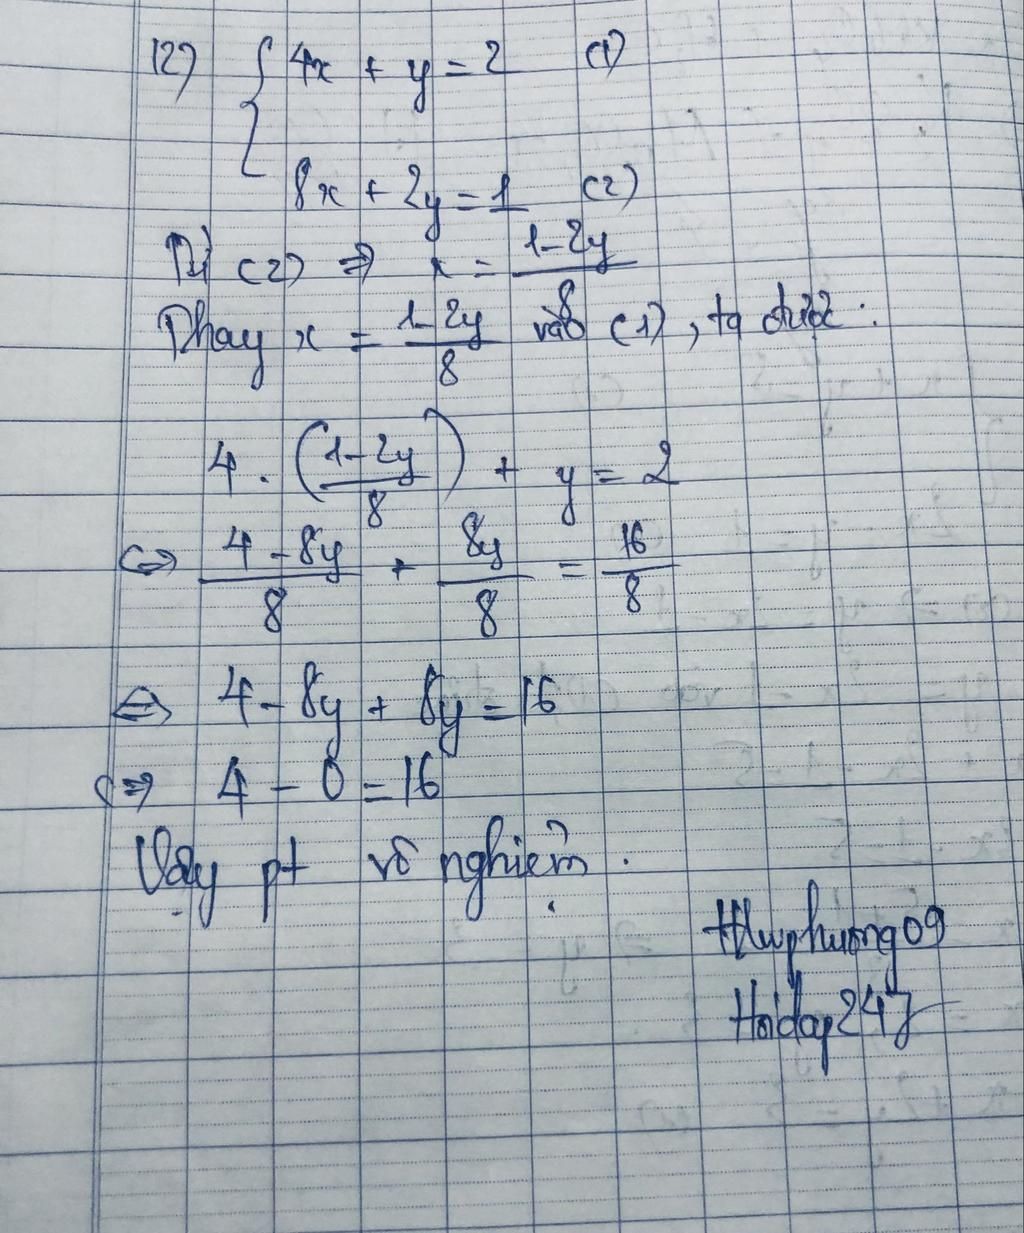 12) { 4x + y = 2 (1)
8x + 2y = 1 (2)
Từ (2) ⇒ x = (1-2y)/8
Thay x = (1-2y)/8 vào (1), ta được:
4 . ((1-2y)/8) + y = 2
⇔ (4-8y)/8 + 8y/8 = 16/8
⇔ 4 - 8y + 8y = 16
⇔ 4 - 0 = 16
Vậy pt vô nghiệm.
Hoidap247